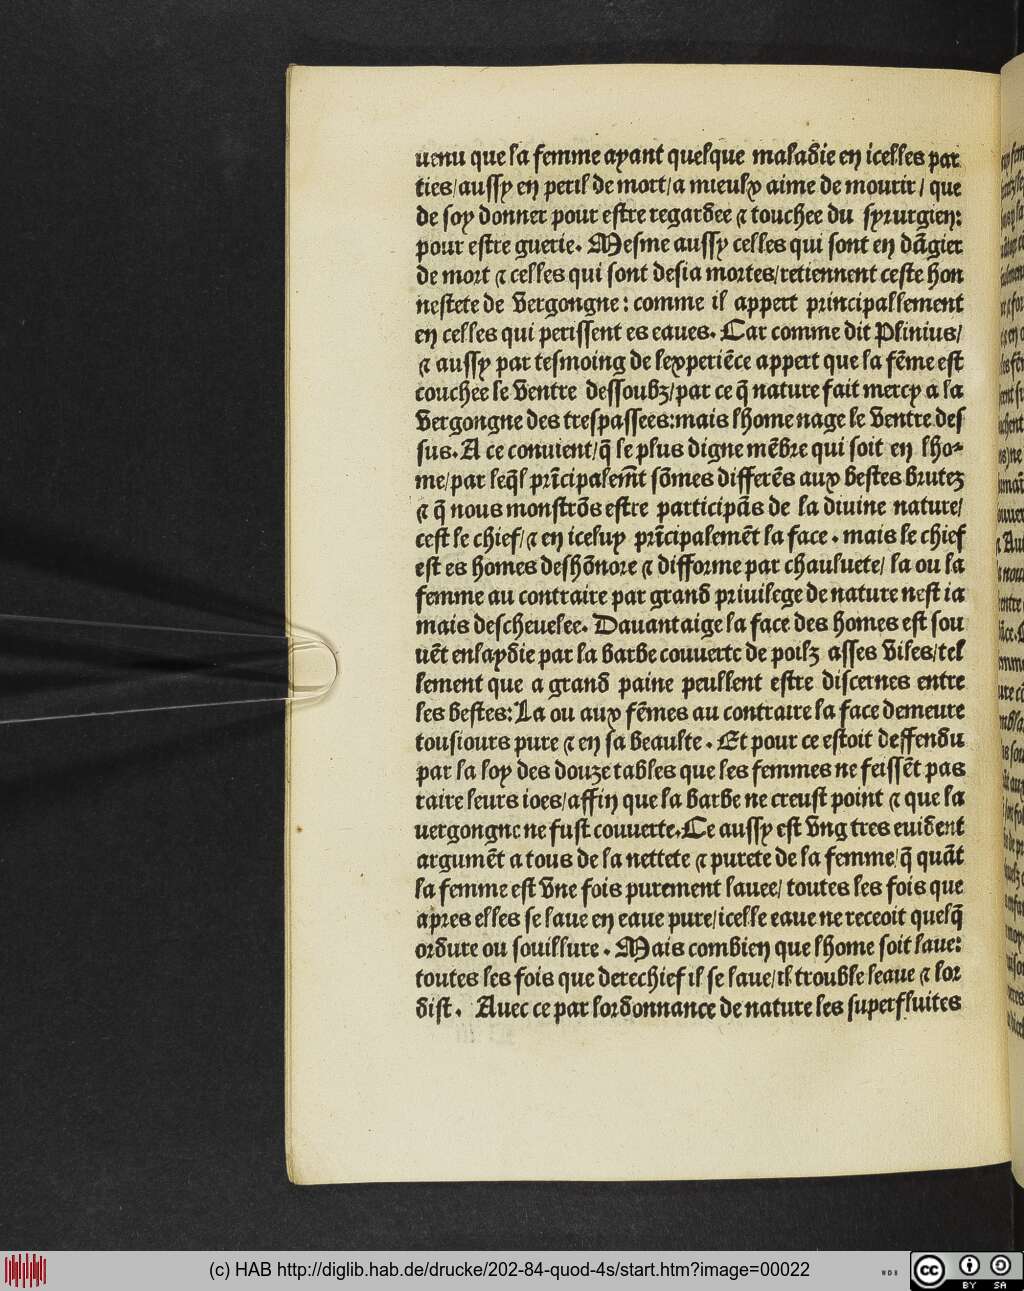 uenu que la femme ayant quelque maladie en icelles par
ties/aussy en peril de mort/a mieulx aime de mourir/ que
de soy donner pour estre regardee ⁊ touchee du syrurgien:
pour estre guerie. Mesme aussy celles qui sont en dãgier
de mort ⁊ celles qui sont desia mortes/retiennent ceste hon
nestete de vergongne: comme il appert principallement
en celles qui perissent es eaues. Car comme dit Plinius/
⁊ aussy par tesmoing de lexperiẽce appert que la fẽme est
couchee le ventre dessoubz/par ce q̃ nature fait mercy a la
vergongne des trespassees:mais lhome nage le ventre des
sus. A ce conuient/q̃ le plus digne mẽbre qui soit en lho⸗
me/par leq̃l prĩcipalem̃t sõmes differẽs aux bestes brutez
⁊ q̃ nous monstrõs estre participãs de la diuine nature/
cest le chief/⁊ en iceluy prĩcipalemẽt la face. mais le chief
est es homes deshõnore ⁊ difforme par chauluete/ la ou la
femme au contraire par grand priuilege de nature nest ia
mais descheuelee. Dauantaige la face des homes est sou
uẽt enlaydie par la barbe couuerte de poilz asses viles/tel
lement que a grand paine peullent estre discernes entre
les bestes:La ou aux fẽmes au contraire la face demeure
tousiours pure ⁊ en sa beaulte. Et pour ce estoit deffendu
par la loy des douze tables que les femmes ne feissẽt pas
raire leurs ioes/affin que la barbe ne creust point ⁊ que la
uergongne ne fust couuerte.Ce aussy est vng tres euident
argumẽt a tous de la nettete ⁊ purete de la femme/q̃ quãt
la femme est vne fois purement lauee/ toutes les fois que
apres elles se laue en eaue pure/icelle eaue ne recoeit quelq̃
ordure ou souillure. Mais combien que lhome soit laue:
toutes les fois que derechief il se laue/il trouble leaue ⁊ lor
dist. Auec ce par lordonnance de nature les superfluites
(c) HAB http://diglib.hab.de/drucke/202-84-quod-4s/start.htm?image=00022
WDB
cc
BY SA